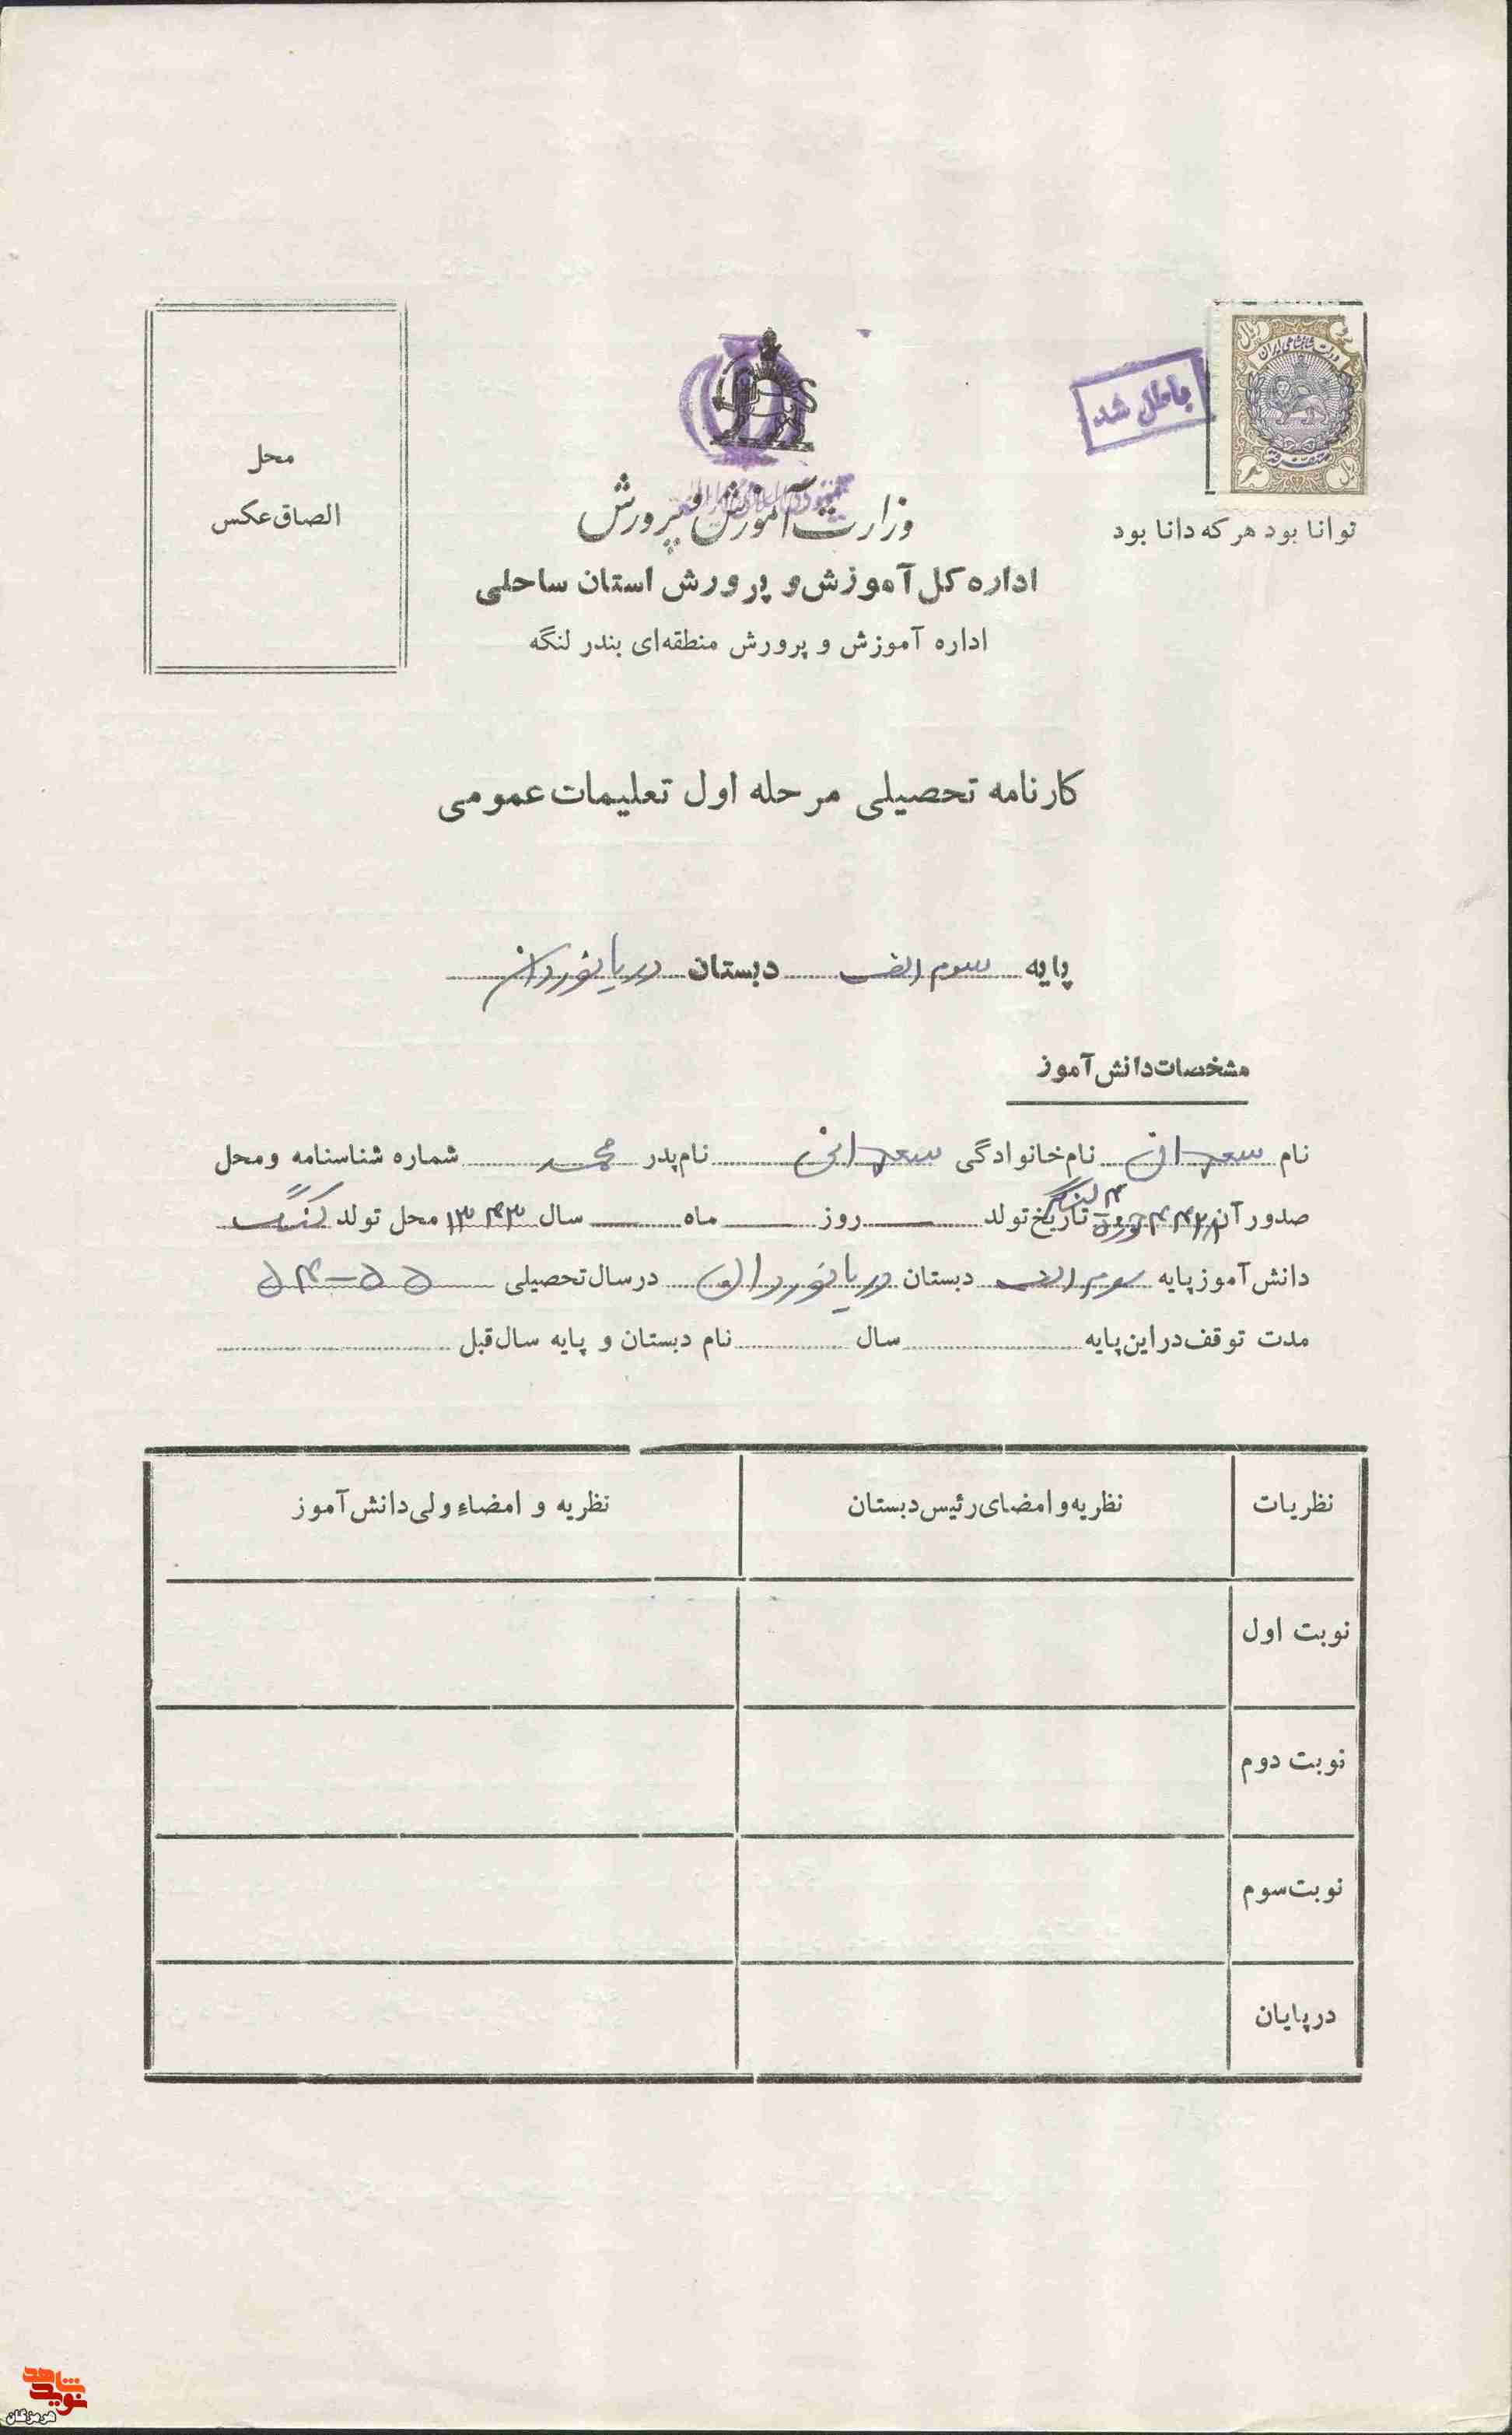 دولت شاهنشاهی ایران
باطل شد
توانا بود هر که دانا بود
محل
الصاق عکس
وزارت آموزش و پرورش
اداره کل آموزش و پرورش استان ساحلی
اداره آموزش و پرورش منطقه‌ای بندر لنگه
کارنامه تحصیلی مرحله اول تعلیمات عمومی
پایه سوم الف دبستان دریانوردان
مشخصات دانش آموز
نام نام خانوادگی نام پدر محمد شماره شناسنامه و محل
صدور آن تاریخ تولد روز ماه سال ۱۳۴۳ محل تولد کنگ
دانش آموز پایه سوم الف دبستان دریانوردان در سال تحصیلی ۵۵-۵۴
مدت توقف در این پایه سال نام دبستان و پایه سال قبل
نظریات نظریه و امضای رئیس دبستان نظریه و امضاء ولی دانش آموز
نوبت اول
نوبت دوم
نوبت سوم
در پایان
نوید شاهد
هرمزگان